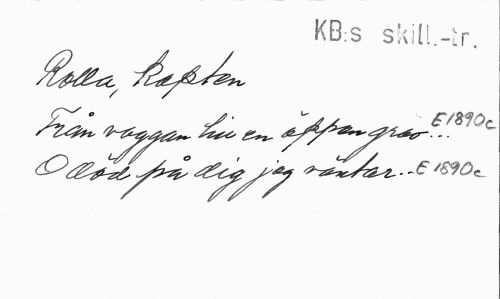 KB:s skill.-tr.
Rolla, Kapten
Från vaggan hu en öppen grav... E1890c
O död på dig jag väntar... E1890c